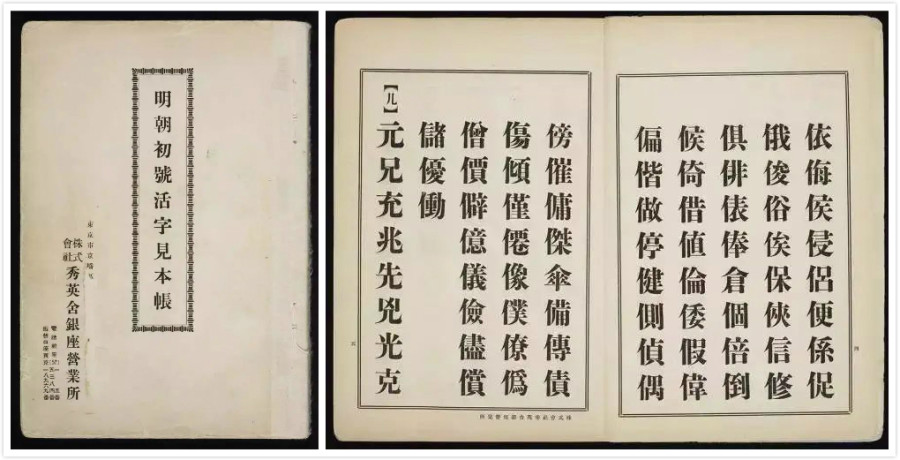 明朝初號活字見本帳
株式會社
秀英舍銀座營業所
依侮侯侵侶便係促
俄俊俗俟保俠信修
俱俳俵俸倉個倍倒
候倚借値倫倭假偉
偏偕做停健側偵偶
四
傍催傭傑傘備傳債
傷傾僅僊像僕僚僞
僧價僻億儀儉儘償
儲優働
【儿】元兄充兆先兇光克
五